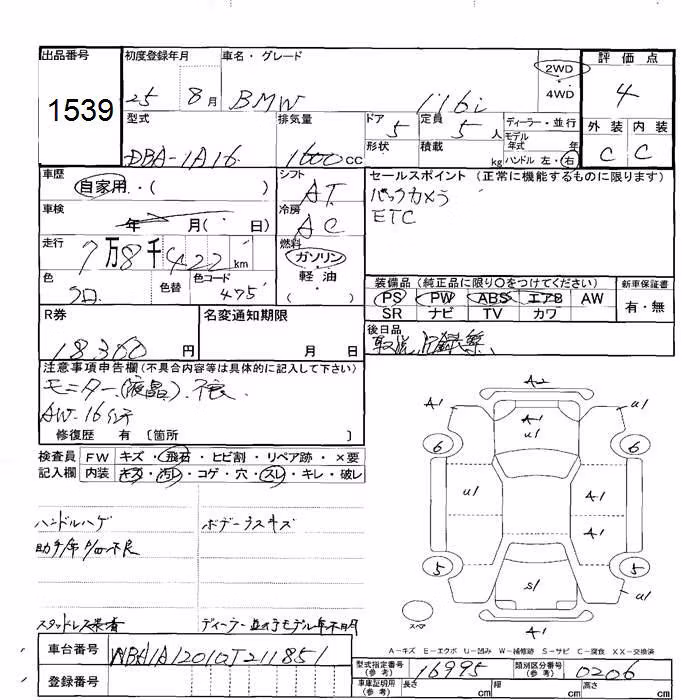 出品番号
1539
初度登録年月
25 8月
車名・グレード
BMW 116i
2WD
4WD
評価点
4
外装 内装
C C
型式
DBA-1A16
排気量
1600cc
ドア
5
定員
5人
形状
積載
kg
ディーラー・並行
モデル年式 年
ハンドル 左・右
車歴
自家用・( )
車検
年 月( 日)
走行
7万8千422km
色
クロ
色替
色コード
475
シフト
AT
冷房
AC
燃料
ガソリン・軽油
( )
セールスポイント (正常に機能するものに限ります)
バックカメラ
ETC
装備品 (純正品に限り○をつけてください)
PS PW ABS エアB AW
SR ナビ TV カワ
新車保証書
有・無
R券
18300円
名変通知期限
月 日
後日品
取説、記録簿
注意事項申告欄(不具合内容等は具体的に記入して下さい)
モニター(液晶)不良
AW-16インチ
修復歴 有 〔箇所 〕
検査員記入欄
FW キズ・飛石・ヒビ割・リペア跡・×要
内装 キズ・汚レ・コゲ・穴・スレ・キレ・破レ
ハンドルハゲ
ボデーラスキズ
助手席 不良
スタッドレス装着
ディーラー 並行モデル年不明
車台番号
WBA1A12010J211851
登録番号
A2
A1 u1
A1
u1
6 6
u1 A1
A1
5 5
S1
u1
スペア
A1
A-キズ E-エクボ U-凹み W-補修跡 S-サビ C-腐食 XX-交換済
型式指定番号(参考)
16995
類別区分番号(参考)
0206
車庫証明用(参考)
長さ cm 幅 cm 高さ cm